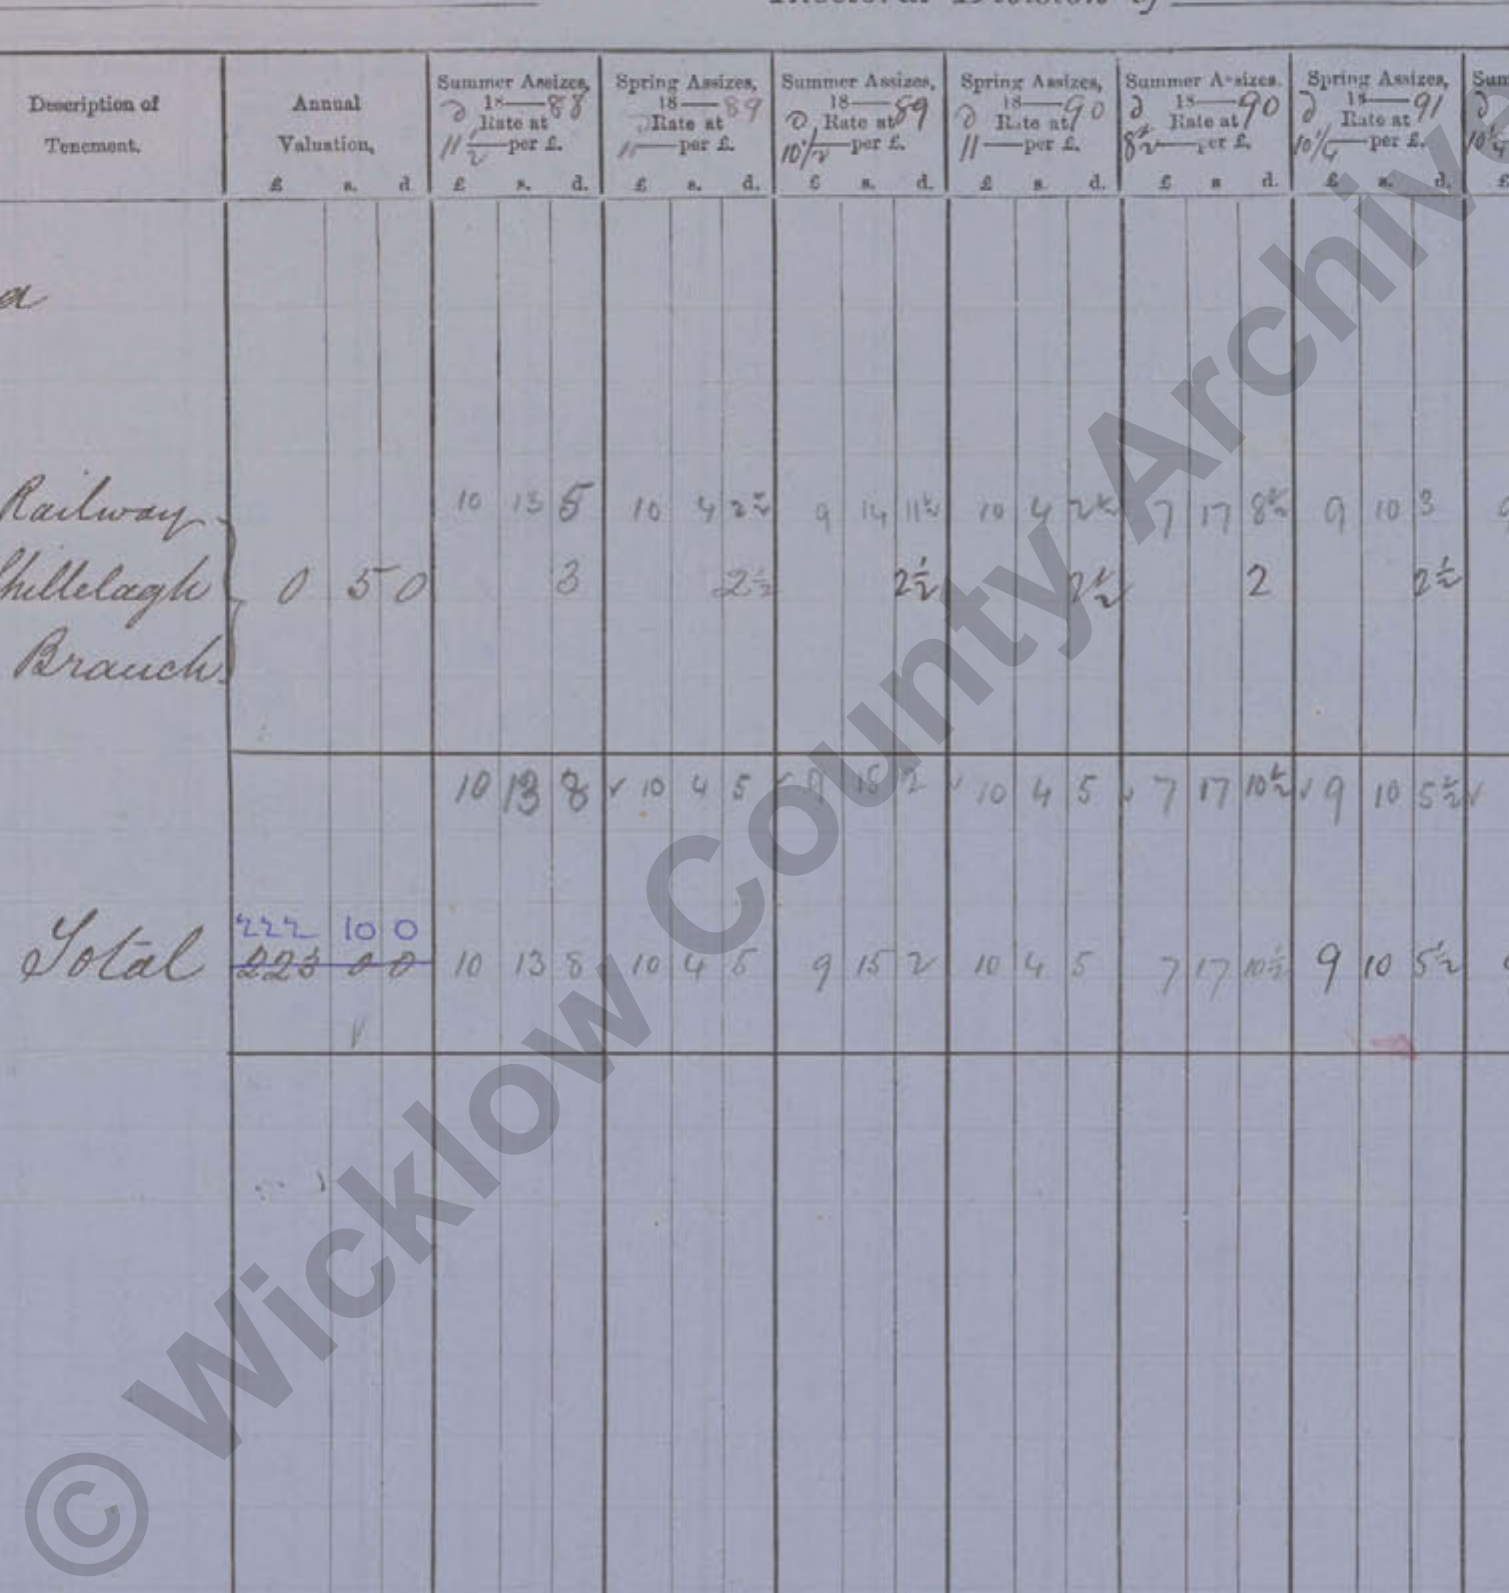 Electoral Division of
Description of Tenement. | Annual Valuation, £ s. d | Summer Assizes, 1888 Rate at 11 1/2 d per £. £ s. d. | Spring Assizes, 1889 Rate at 11 d per £. £ s. d. | Summer Assizes, 1889 Rate at 10 1/2 d per £. £ s. d. | Spring Assizes, 1890 Rate at 11 d per £. £ s d. | Summer Assizes. 1890 Rate at 8 1/2 d per £. £ s d. | Spring Assizes, 1891 Rate at 10 1/4 d per £. £ s. d. | Sum
a
Railway | 10 13 5 | 10 4 2 1/2 | 9 14 11 1/2 | 10 4 2 1/2 | 7 17 8 1/2 | 9 10 3
Shillelagh | 0 5 0 | 3 | 2 1/2 | 2 1/2 | 2 1/2 | 2 | 2 1/2
Branch
10 13 8 | ✓ 10 4 5 | ✓ 9 15 2 | ✓ 10 4 5 | ✓ 7 17 10 1/2 | ✓ 9 10 5 1/2 ✓
222 10 0
Total | 223 0 0 | 10 13 8 | 10 4 5 | 9 15 2 | 10 4 5 | 7 17 10 1/2 | 9 10 5 1/2
© Wicklow County Archive